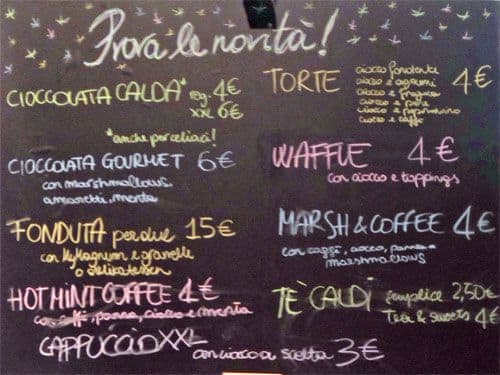 Prova le novità!
CIOCCOLATA CALDA* reg. 4€
XXL 6€
*anche per celiaci!
CIOCCOLATA GOURMET 6€
con marshmallows,
amaretti, menta
FONDUTA per due 15€
con MyMagnum e granelle
o delikatessen
HOT MINT COFFEE 4€
con caffè, panna, ciocco e menta
CAPPUCCIO XXL con ciocco a scelta 3€
TORTE 4€
ciocco fondente
ciocco e agrumi
ciocco e fragola
ciocco e pere
ciocco e peperoncino
ciocco e caffè
WAFFLE 4€
con ciocco e toppings
MARSH & COFFEE 4€
con caffè, ciocco, panna
marshmallows
TÈ CALDI semplice 2,50€
Tea & sweets 4€